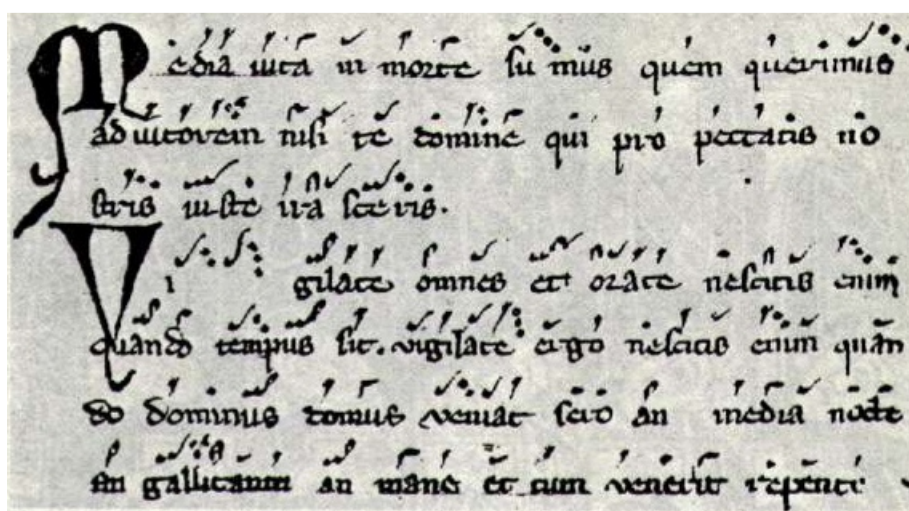 Media uita in morte su mus quem querimus
adiutorem nisi te domine qui pro peccatis no
stris iuste ira sceris.
Vi gilate omnes et orate nescitis enim
quando tempus sit. vigilate ergo nescitis enim quan
do dominus domus veniat sero an media nocte
an gallicantu an mane et cum venerit repente